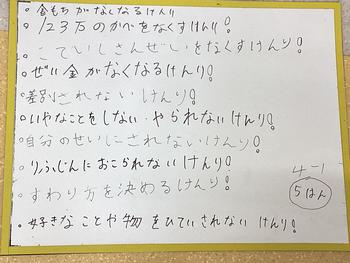 。金もちがなくなるけんり
。123万のかべをなくすけんり!
。こていしさんぜいをなくすけんり!
。ぜい金がなくなるけんり!
。差別されないけんり!
。いやなことをしない・やられないけんり!
。自分のせいにされないけんり!
。りふじんにおこられないけんり!
。すわり方を決めるけんり!
。好きなことや物をひていされないけんり!
4-1
5はん